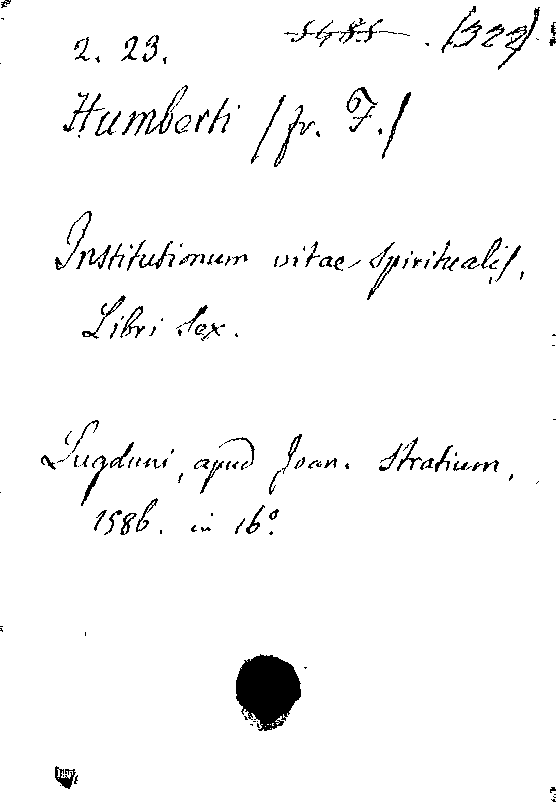 2. 23. 5485 . (322).
Humberti (fr. F.)
Institutionum vitae spiritualis,
Libri sex.
Lugduni, apud Joan. Stratium,
1586. in 16º.